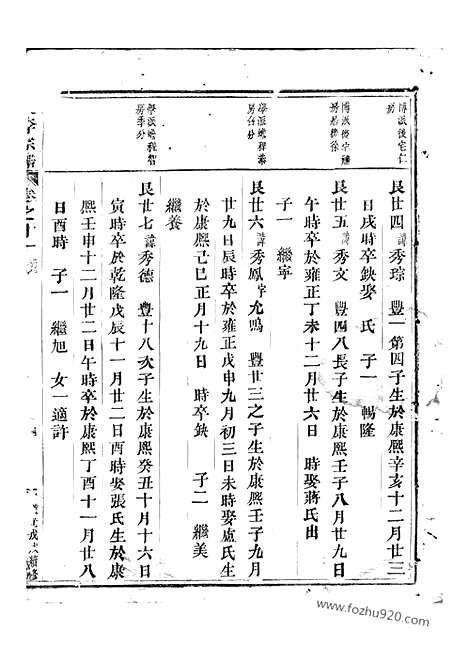 艮廿四諱秀琮 豐一第四子生於康熙辛亥十二月廿三
日戌時卒缺娶 氏 子一 暢隆
艮廿五諱秀文 豐四八長子生於康熙壬子八月廿九日
午時卒於雍正丁未十二月廿六日 時娶蔣氏出
子一 繼寧
艮廿六諱秀鳳字允鳴 豐廿三之子生於康熙壬子九月
廿九日辰時卒於雍正戊申九月初三日未時娶盧氏生
於康熙己巳正月十九日 時卒缺 子二 繼美
繼養
艮廿七諱秀德 豐十八次子生於康熙癸丑十月十六日
寅時卒於乾隆戊辰十一月廿二日酉時娶張氏生於康
熙壬申十二月廿二日午時卒於康熙丁酉十一月廿八
日酉時 子一 繼旭 女一適許
www.fozhu920.com